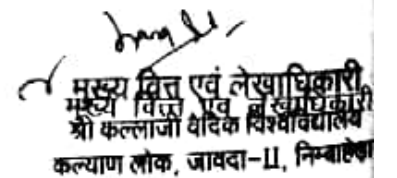 मुख्य वित्त एवं लेखाधिकारी
मुख्य वित्त एवं लेखाधिकारी
श्री कल्लाजी वैदिक विश्वविद्यालय
कल्याण लोक, जावदा-II, निम्बाहेड़ा